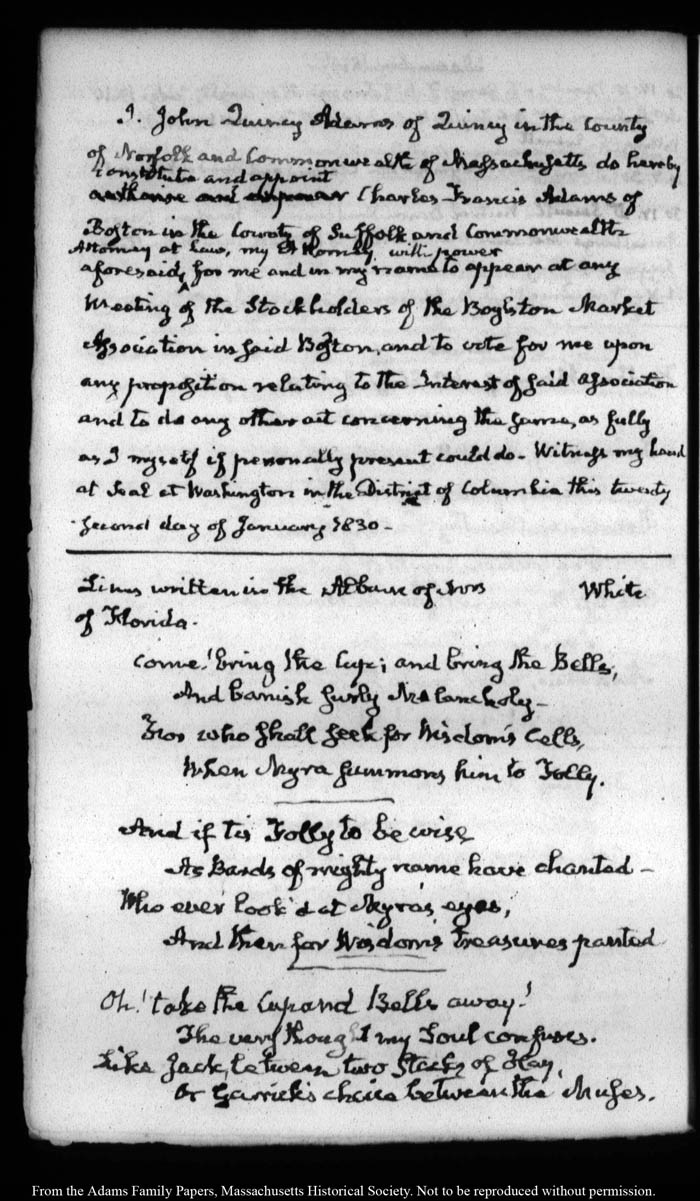 I. John Quincy Adams of Quincy in the County
of Norfolk and Commonwealth of Massachusetts do hereby
constitute and appoint
authorise and empower Charles Francis Adams of
Boston in the County of Suffolk and Commonwealth
Attorney at Law, my Attorney with power
aforesaid, for me and in my name to appear at any
Meeting of the Stockholders of the Boylston Market
Association in said Boston, and to vote for me upon
any proposition relating to the Interest of said Association
and to do any other act concerning the same, as fully
as I myself if personally present could do - Witness my hand
at Seal at Washington in the District of Columbia this twenty
second day of January 1830 -
Lines written in the Album of Mrs White
of Florida.
Come! bring the Cap; and bring the Bells,
And banish surly Melancholy -
For who shall seek for Wisdom's Cells,
When Myra summons him to Folly.
And if tis Folly to be wise
As Bards of mighty name have chanted -
Who ever look'd at Myra's eyes,
And then for Wisdom's Treasures panted
Oh! take the Cap and Bells away!
The very thought my Soul confuses.
Like Jack, between two Stacks of Hay,
Or Garrick's choice between the Muses.
From the Adams Family Papers, Massachusetts Historical Society. Not to be reproduced without permission.